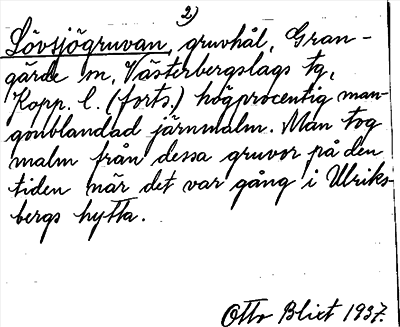 2)
Lövsjögruvan, gruvhål, Gran-
gärde sn, Västerbergslags tg,
Kopp. l. (forts.) högprocentig man-
gonblandad järnmalm. Man tog
malm från dessa gruvor på den
tiden när det var gång i Ulriks-
bergs hytta.
Otto Blixt 1937.